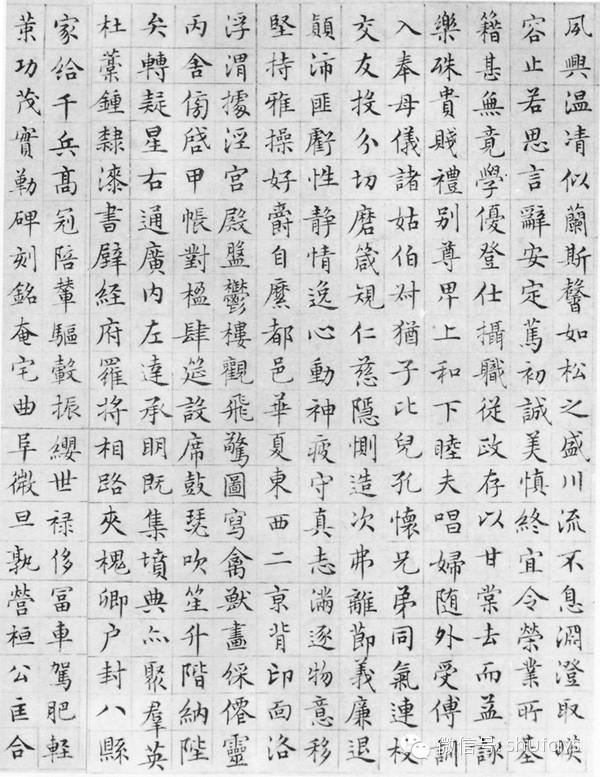 夙興温凊似蘭斯馨如松之盛川流不息淵澄取暎
容止若思言辭安定篤初誠美慎終宜令榮業所基
籍甚無竟學優登仕攝職從政存以甘棠去而益詠
樂殊貴賤禮別尊卑上和下睦夫唱婦随外受傅訓
入奉母儀諸姑伯叔猶子比兒孔懷兄弟同氣連枝
交友投分切磨箴規仁慈隱惻造次弗離節義廉退
顛沛匪虧性静情逸心動神疲守真志滿逐物意移
堅持雅操好爵自縻都邑華夏東西二京背邙面洛
浮渭據涇宮殿盤鬱樓觀飛驚圖寫禽獸畫綵僊靈
丙舍傍啓甲帳對楹肆筵設席鼓瑟吹笙升階納陛
弁轉疑星右通廣内左達承明既集墳典亦聚羣英
杜藁鍾隸漆書壁經府羅將相路夾槐卿户封八縣
家給千兵高冠陪輦驅轂振纓世禄侈富車駕肥軽
策功茂實勒碑刻銘奄宅曲阜微旦孰營桓公匡合
微信号: